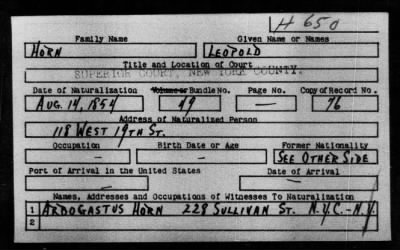 H 650
Family Name Given Name or Names
HORN LEOPOLD
Title and Location of Court
SUPERIOR COURT, NEW YORK COUNTY.
Date of Naturalization Volume or Bundle No. Page No. Copy of Record No.
AUG. 14, 1854 49 — 76
Address of Naturalized Person
118 WEST 19TH ST.
Occupation Birth Date or Age Former Nationality
— — SEE OTHER SIDE
Port of Arrival in the United States Date of Arrival
— —
Names, Addresses and Occupations of Witnesses To Naturalization
1 ARDOGASTUS HORN 228 SULLIVAN ST. N.Y.C.-N.Y.
2